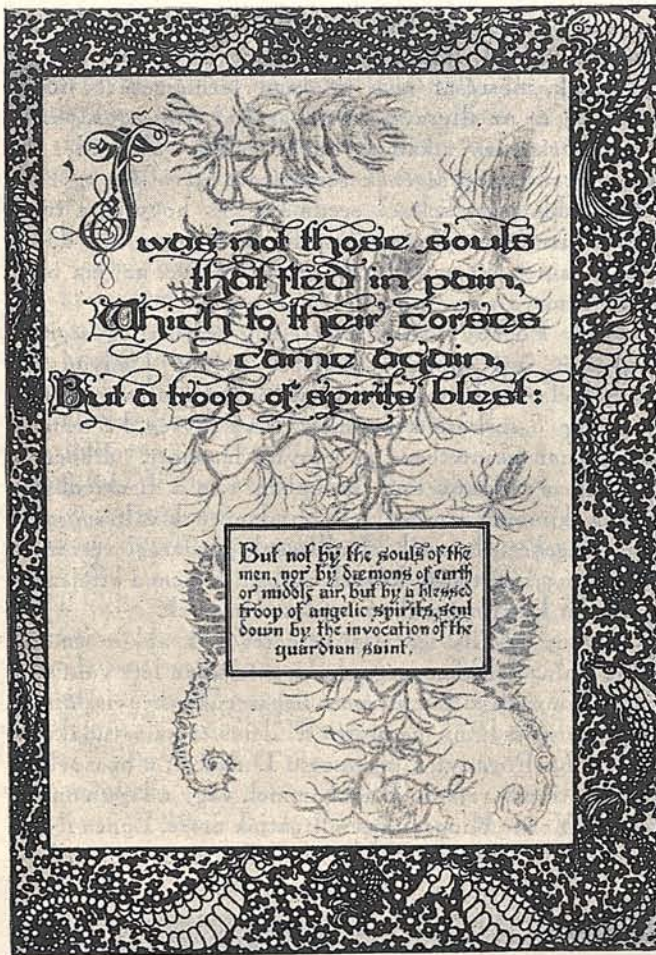 'Twas not those souls
that fled in pain,
Which to their corses
came again,
But a troop of spirits blest:
But not by the souls of the
men, nor by dæmons of earth
or middle air, but by a blessed
troop of angelic spirits, sent
down by the invocation of the
guardian saint.